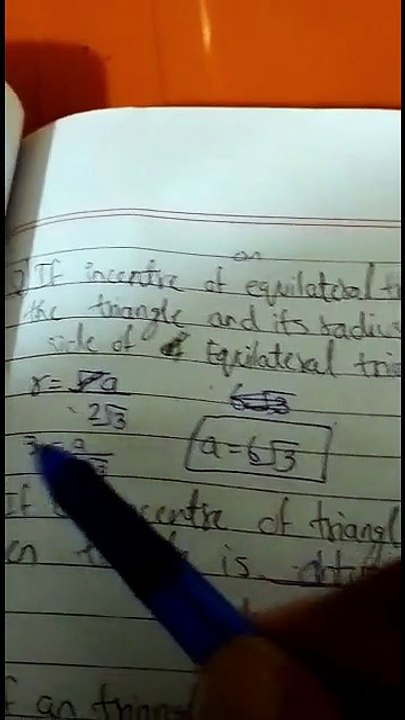 on
If incentre of equilateral
the triangle and its radius
side of Equilateral
r = a
2√3
6√3
a = 6√3
If centre of triangl
is
an triang